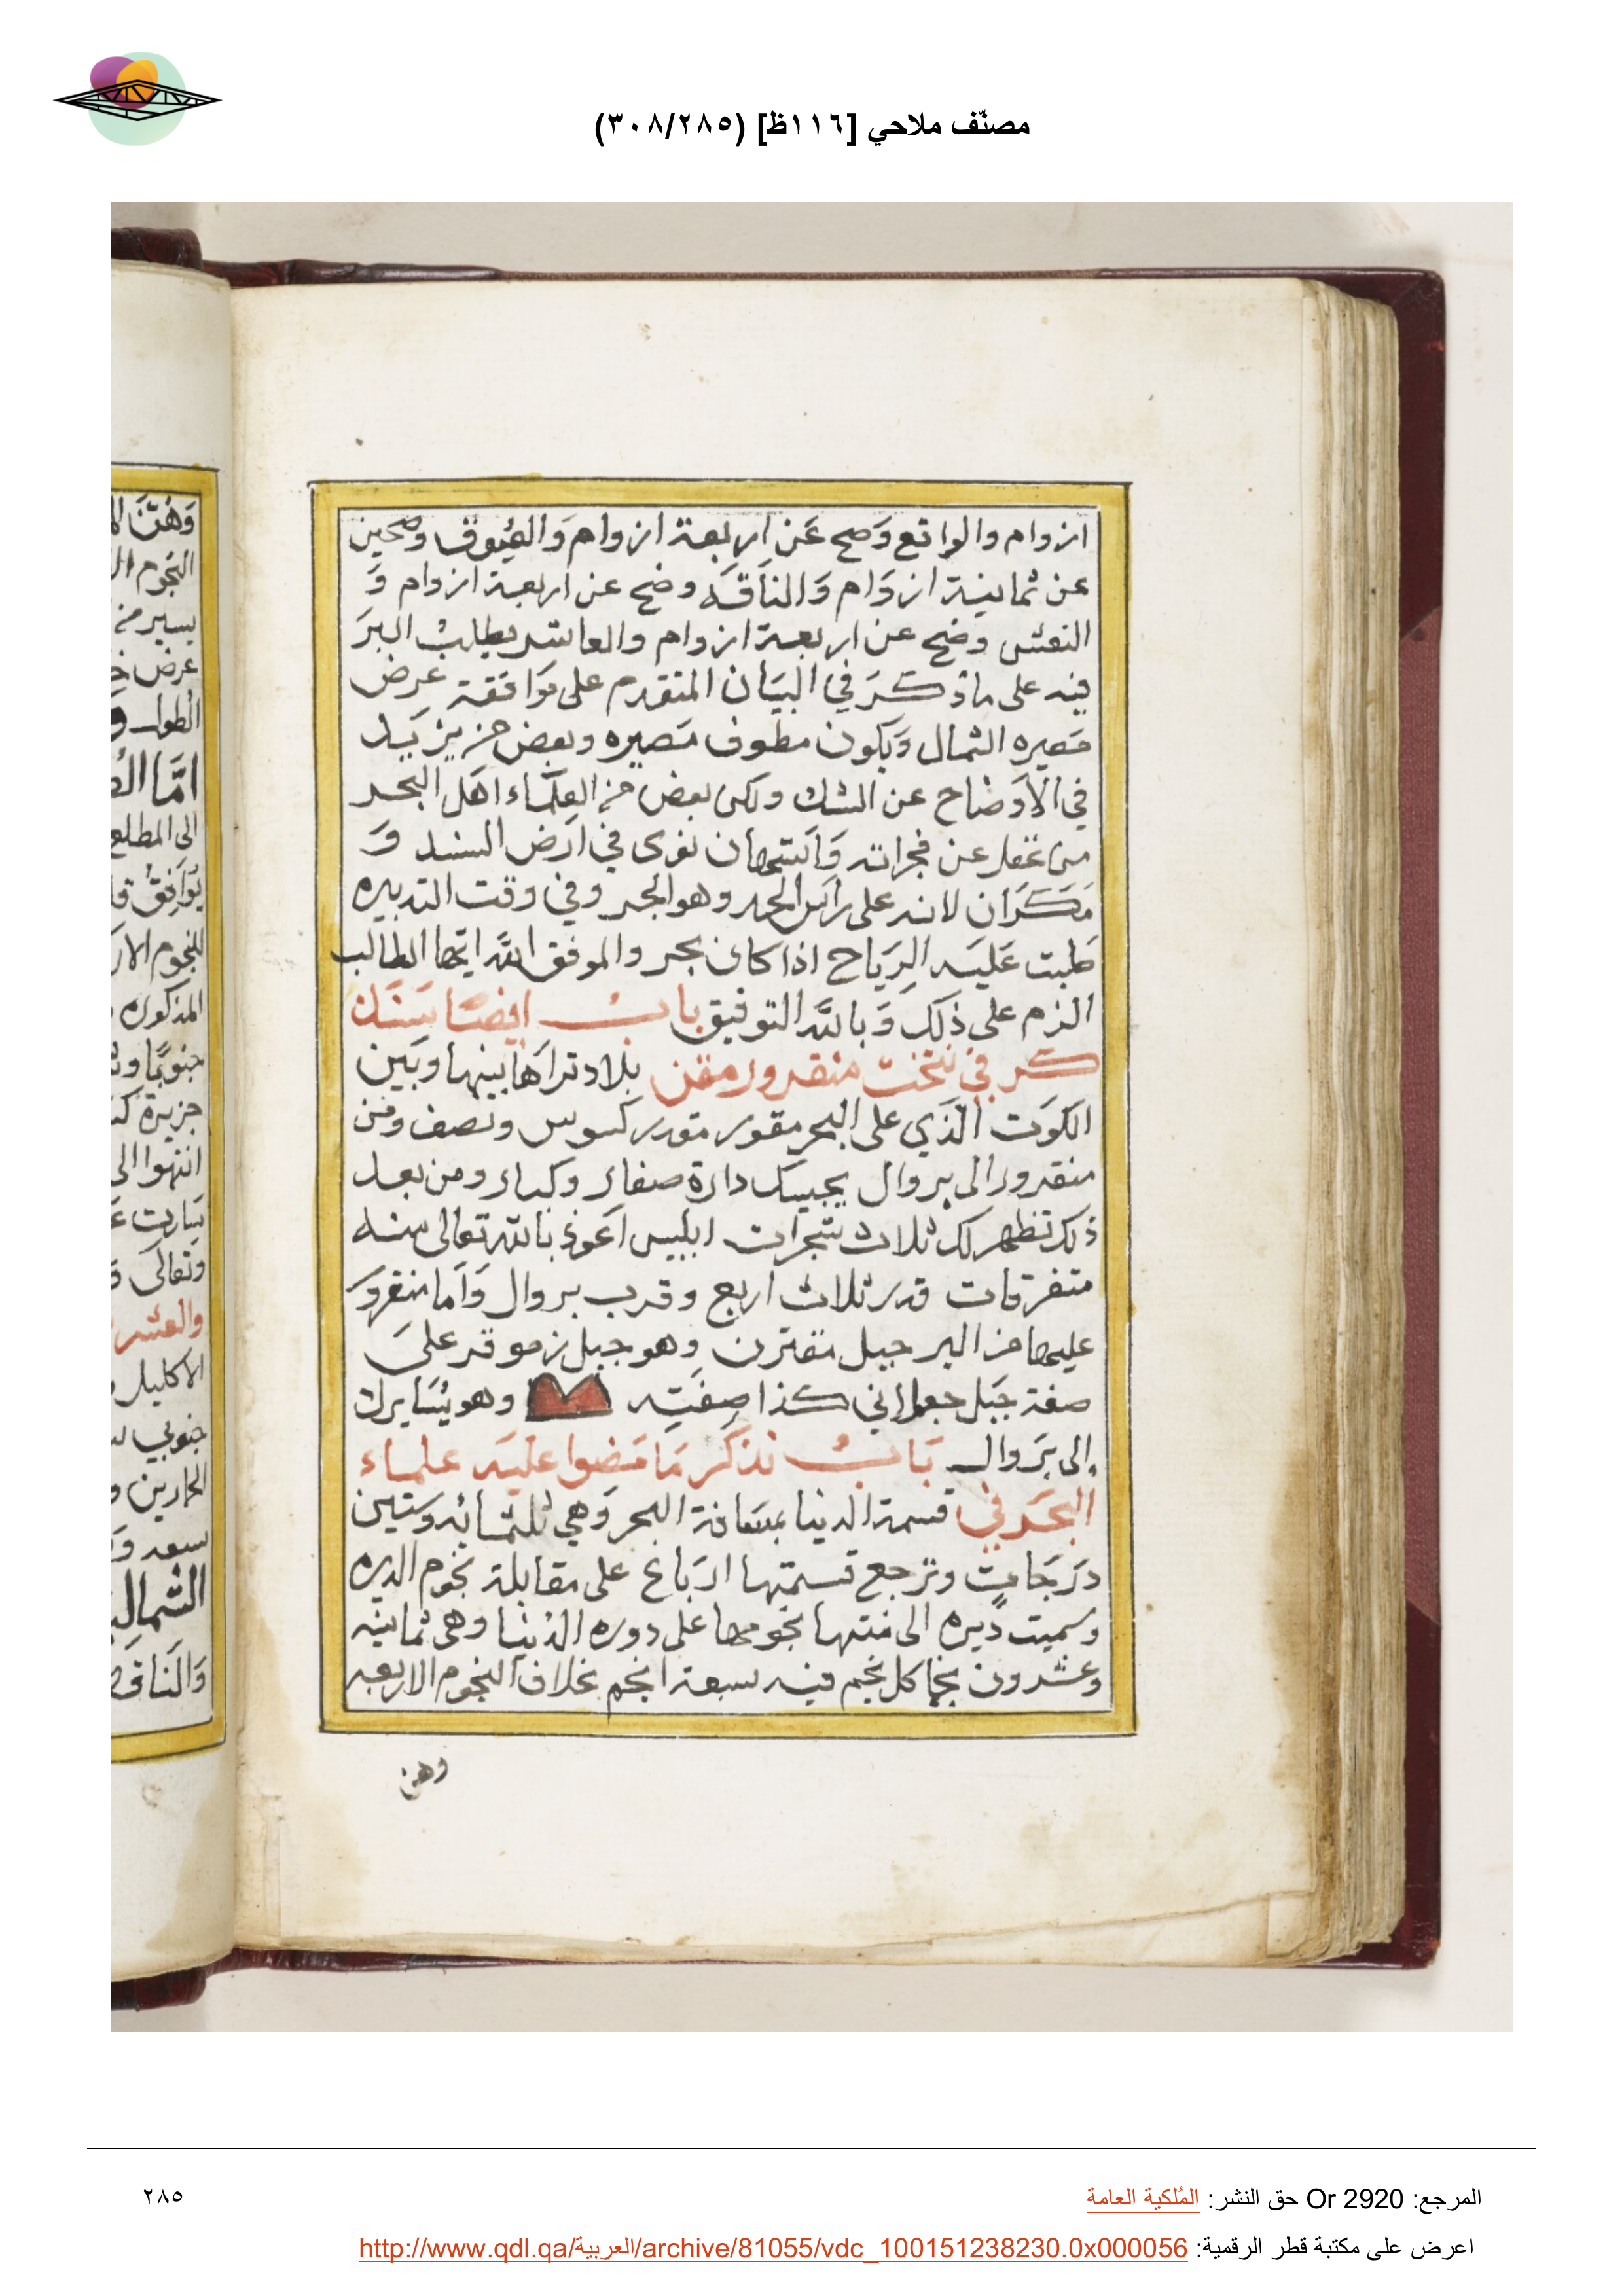 مصنّف ملاحي [١١٦ظ] (٣٠٨/٢٨٥)
ازوام والواقع وَضح عَن اربعة ازوام وَالعيوق وضحين
عن ثمانية ازوَام وَالناقَه وضح عن اربعة ازوام وَ
النعش وضح عن اربعة ازوام والعاشر يطلبُ البرَ
فيه على ماذكرَ في البيَان المتقدم على مَوافقة عرض
مَصيره الشمال وَيكون مطوف مَصيره وبعض من يزيَد
في الاَوضاح عن الشك ولكن بعض من العلمَاء اهَل البحر
من غفل عن
مَكرَان لانه على رَاس الحد وهو الحجر وفي وقت التدبيره
طلبت عَليَه الرِيَاح اذا كان بحر والموفق اللَّه ايّها الطالب
الزم على ذلك وَباللَّه التوفيق بابُ ايضًا
في نتخت منقرور مقن بلاد تراَها بينها وبَين
الكوَت الّذي على البحر مقور مقدر كوس ونصف ومن
منقرور الى بروال يجيك دارة صغار وكبار ومن بعد
ذلك تظهر لك ثلاث شجرات ابليس اَعوذ بالله تعالى منه
متفرقات قدر ثلاث اربع وقرب بروال وَاَما منقرورَ
عليها من البر جبل مقترن وهو جبل زموقر علىَ
صفة جَبل جعلاني كذا صِفَتِه وهو يُسَايرك
الى بَروال بَابُ نذكر مَا مَضوا عليَه علماء
البحَر في قسمة الدنيا بمسَافة البحر وَهي ثلثمائه وستين
درَجَات وترجع قسمتها ارَباع على مقابلة نجوم الديره
وسميت دَيره الى منتها نجومها على دوره الدُنيا وهى ثمانيه
وعشرون نجما كل نجم فيه سبعة انجم بخلاف النجوم الاربعه
وهن
المرجع: Or 2920 حق النشر: المُلكية العامة
٢٨٥
اعرض على مكتبة قطر الرقمية: http://www.qdl.qa/العربية/archive/81055/vdc_100151238230.0x000056